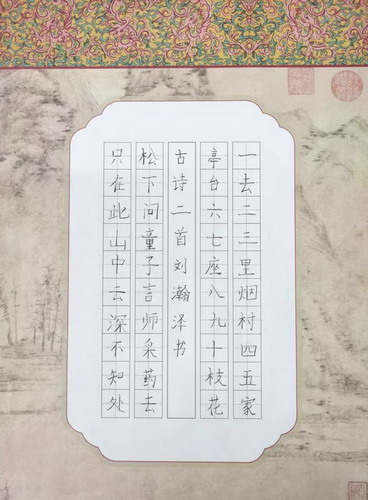 一去二三里烟村四五家
亭台六七座八九十枝花
古诗二首刘瀚泽书
松下问童子言师采药去
只在此山中云深不知处